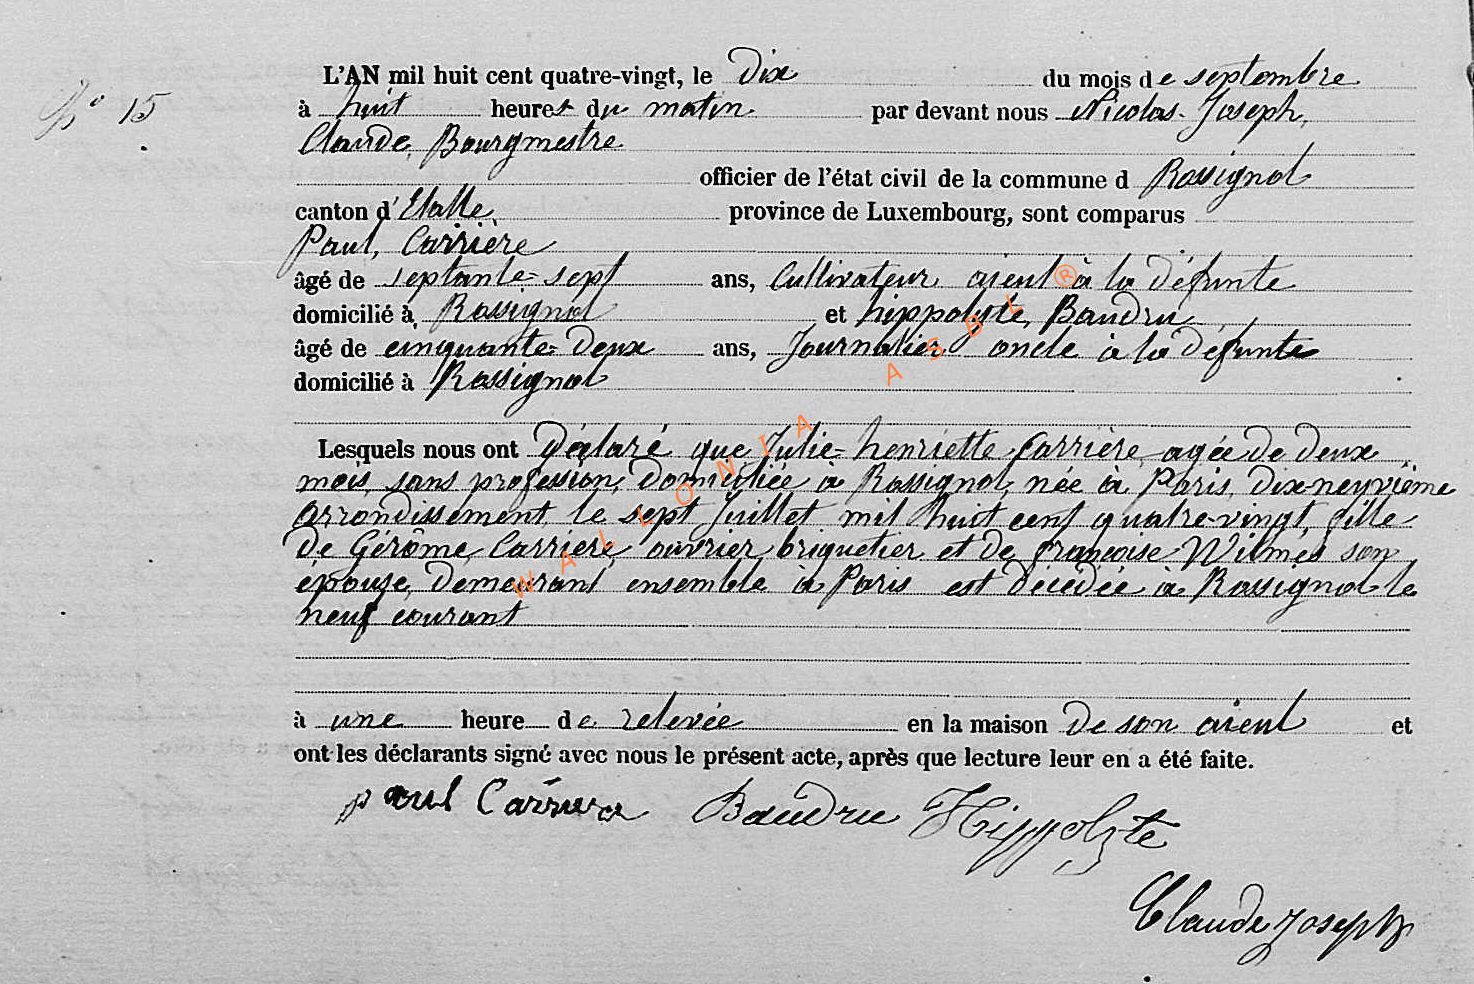 N° 15
L'AN mil huit cent quatre-vingt, le Dix du mois de septembre
à huit heures du matin par devant nous Nicolas Joseph,
Claude, Bourgmestre
officier de l'état civil de la commune d Rossignol
canton d'Etalle, province de Luxembourg, sont comparus
Paul, Carrière
âgé de septante-sept ans, Cultivateur aieul à la défunte
domicilié à Rossignol et hippolyte, Baudru
âgé de cinquante-deux ans, Journalier oncle à la défunte
domicilié à Rossignol
Lesquels nous ont Déclaré que Julie-henriette Carrière agée de deux
mois, sans profession, domiciliée à Rossignol, née à Paris, dix-neuvième
arrondissement, le sept Juillet mil huit cent quatre-vingt, fille
de Gérôme Carrière, ouvrier briquetier et de françoise Wilmès son
épouze, demeurant ensemble à Paris est décédée à Rossignol le
neuf courant
à une heure de relevée en la maison de son aieul et
ont les déclarants signé avec nous le présent acte, après que lecture leur en a été faite.
paul Carriere Baudru Hippolyte
Claude Joseph
WALLONIA ASBL ®